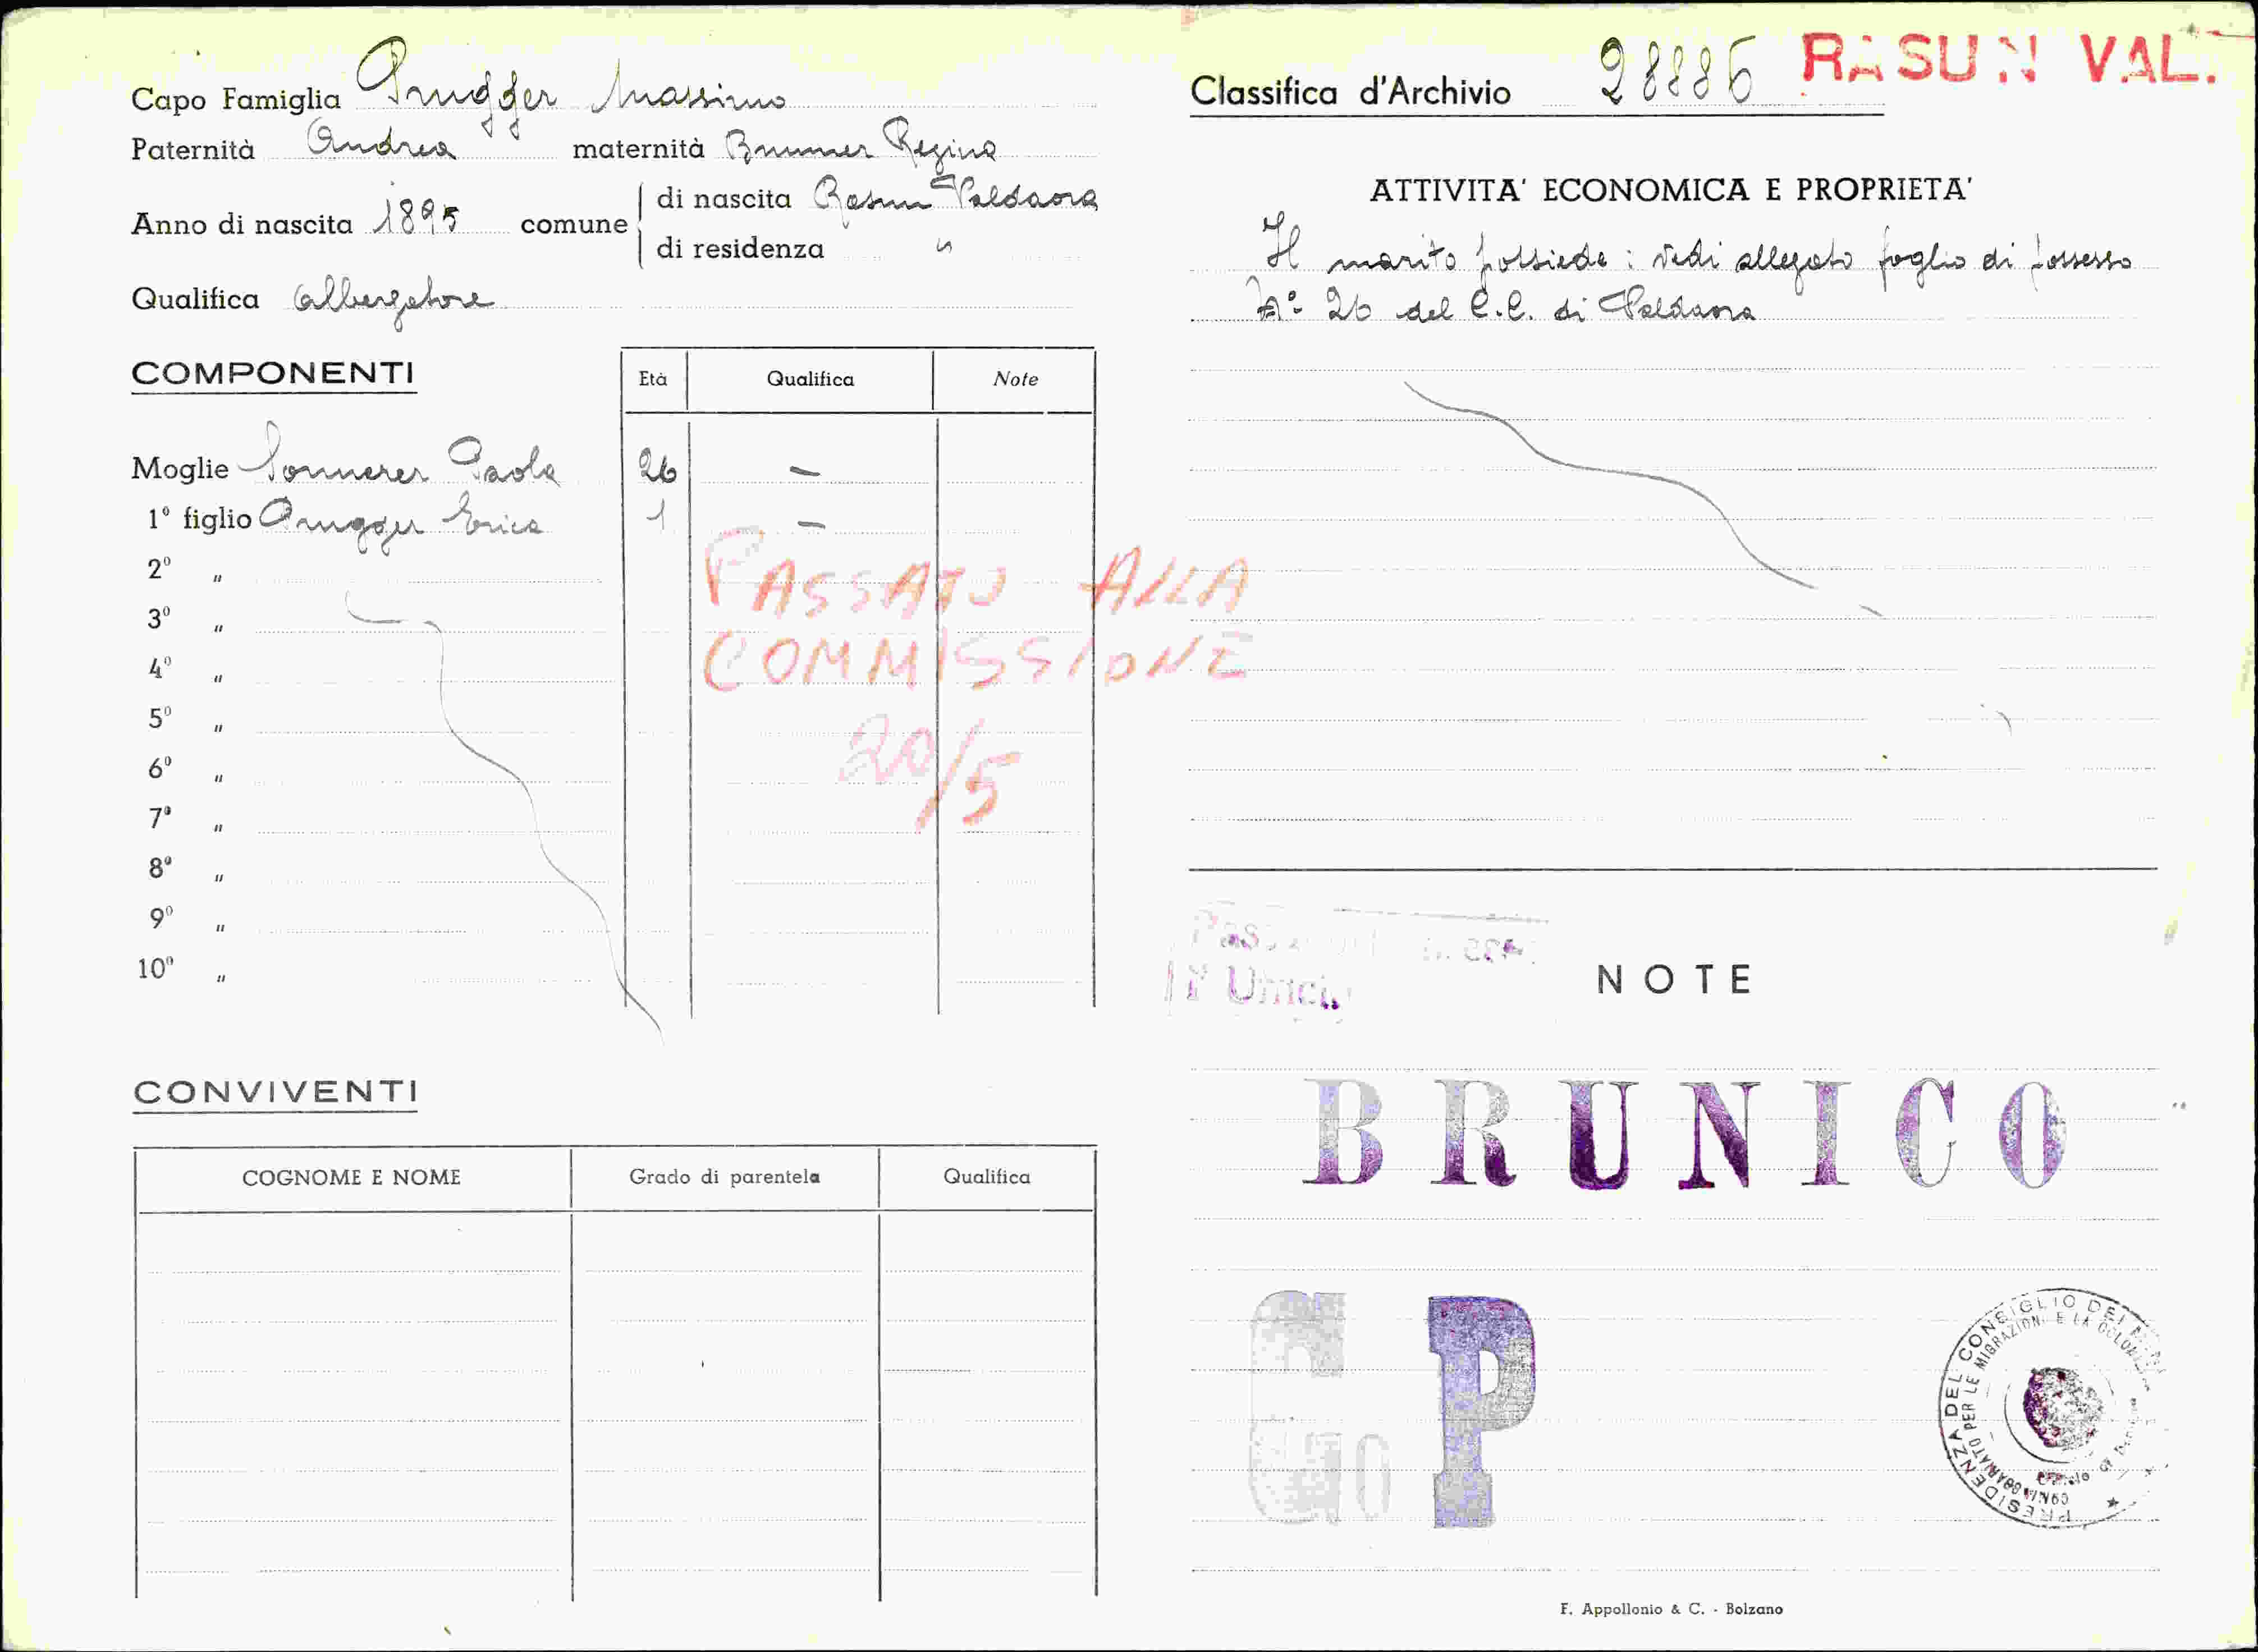 Capo Famiglia Prugger Massimo
Paternità Andrea maternità Brunner Regina
Anno di nascita 1895 comune di nascita Rasun Valdaora
di residenza "
Qualifica Albergatore
COMPONENTI
Età Qualifica Note
Moglie Sonnerer Paola 26 —
1° figlio Prugger Erica 1 —
2° "
3° "
4° "
5° "
6° "
7° "
8° "
9° "
10° "
PASSATO ALLA
COMMISSIONE
20/5
CONVIVENTI
COGNOME E NOME Grado di parentela Qualifica
Classifica d'Archivio 28886 RASUN VAL.
ATTIVITA' ECONOMICA E PROPRIETA'
Il marito possiede: vedi allegato foglio di possesso
N° 26 del C.C. di Valdaora
NOTE
BRUNICO
P
PRESIDENZA DEL CONSIGLIO DEI
PER LE MIGRAZIONI E LA
F. Appollonio & C. - Bolzano